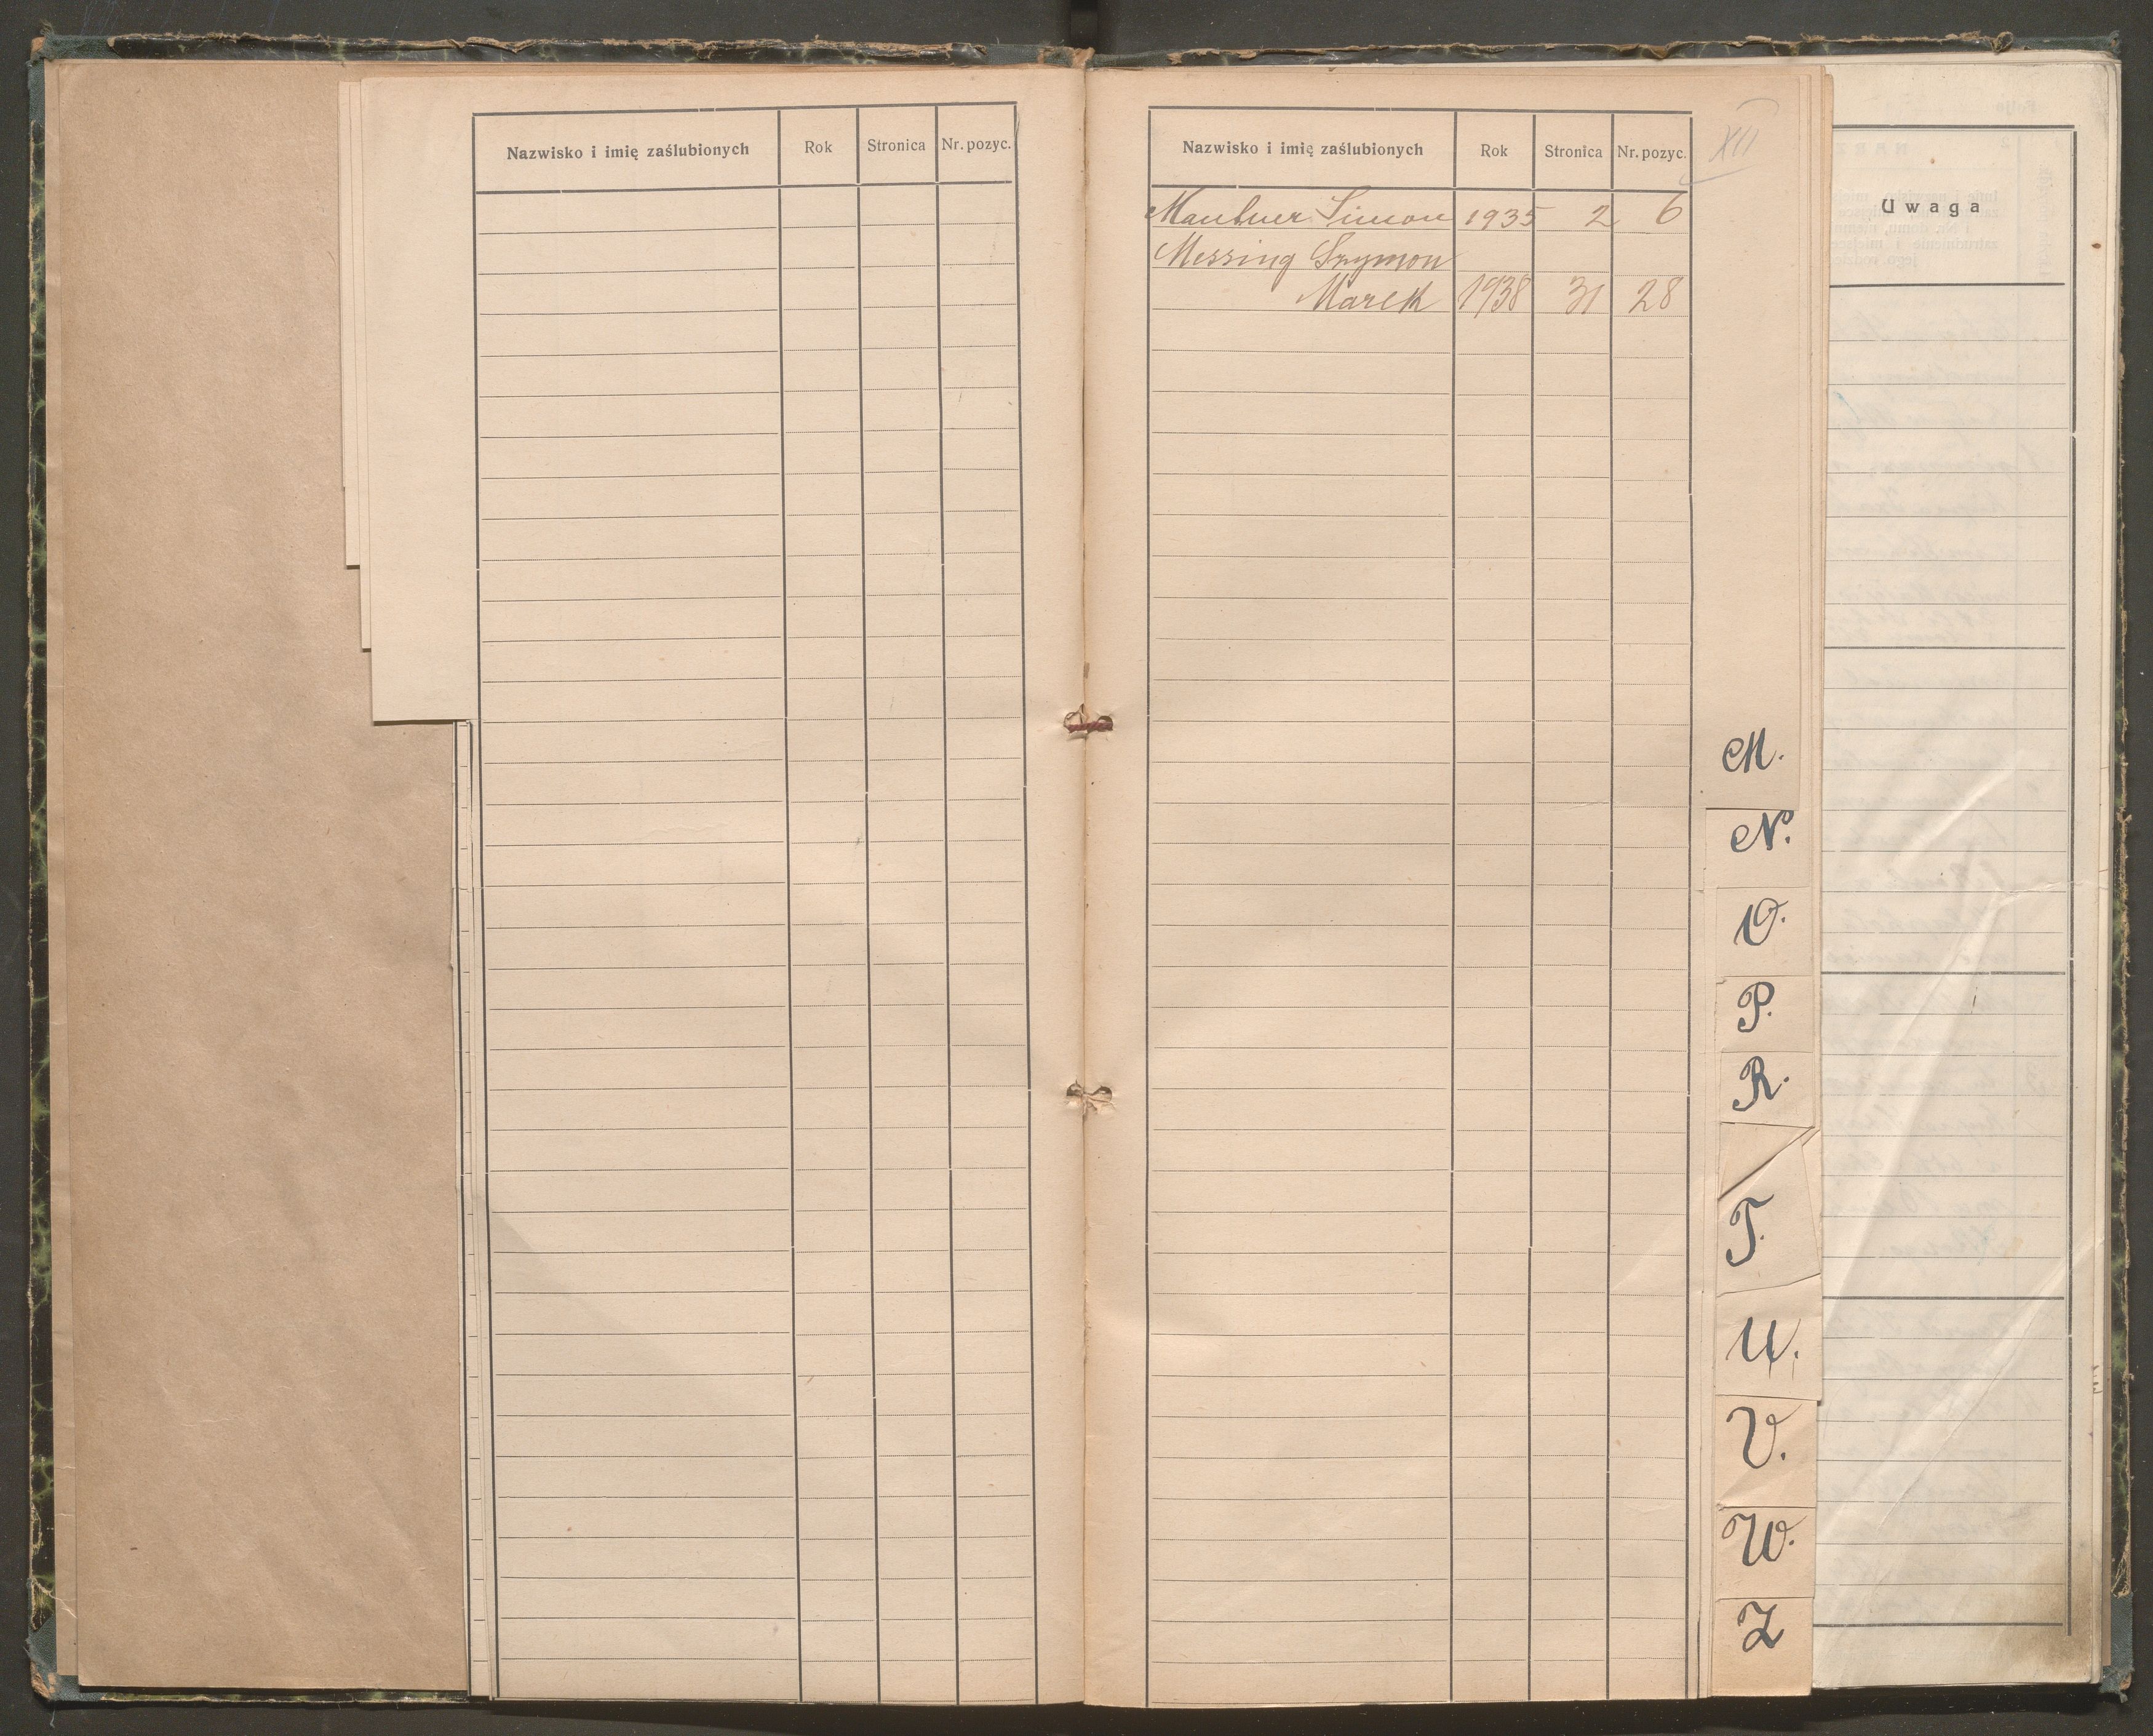 Nazwisko i imię zaślubionych Rok Stronica Nr. pozyc.
Nazwisko i imię zaślubionych Rok Stronica Nr. pozyc.
XII
Mautner Simon 1935 2 6
Messing Szymon
Marek 1938 31 28
Uwaga
M.
N.
O.
P.
R.
T.
U.
V.
W.
Z